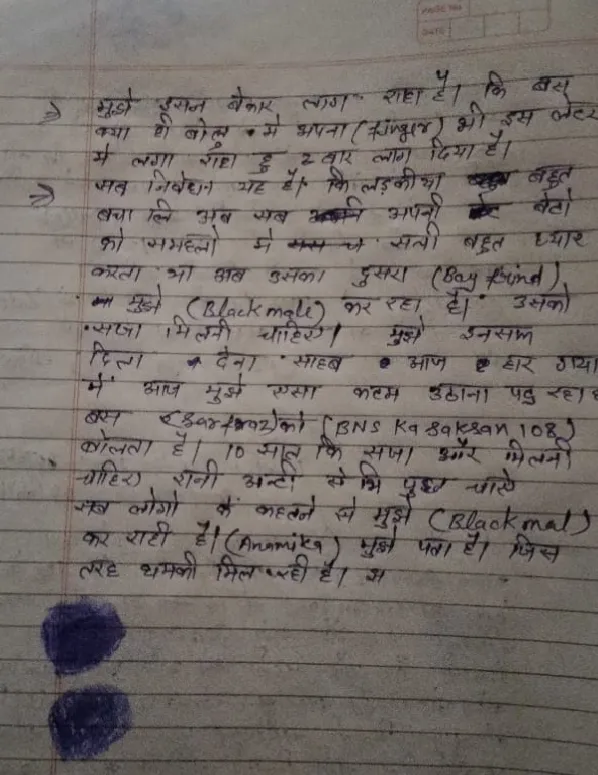 PAGE NO
DATE
मुझे इसन बेकार लाग राहा है। कि बस
क्या ही बोलु मे अपना (finger) भी इस लेटर
मे लगा राहा हु 2 बार लाग दिया है।
सब निवेधन यह है। कि लड़कीया बहुत
बचा लि अब सब अपनी बेटो
को समहलो मे सच्ची बहुत प्यार
करता था अब उसका दुसरा (Bay frind)
मुझे (Blackmale) कर रहा है। उसको
सजा मिलनी चाहिए। मुझे इनसाफ
दिला देना साहब आज हार गया
मे आज मुझे एसा कदम उठाना पड़ रहा है
बस (Sarfraz) को (BNS Ka saksan 108)
बोलता है। 10 साल कि सजा और मिलनी
चाहिए रानी अन्टी से भि पुछा चाहे
सब लोगो के कहने से मुझे (Blackmal)
कर राही है। (Anamika) मुझे पता है। जिस
तरह धमकी मिल रही है। म